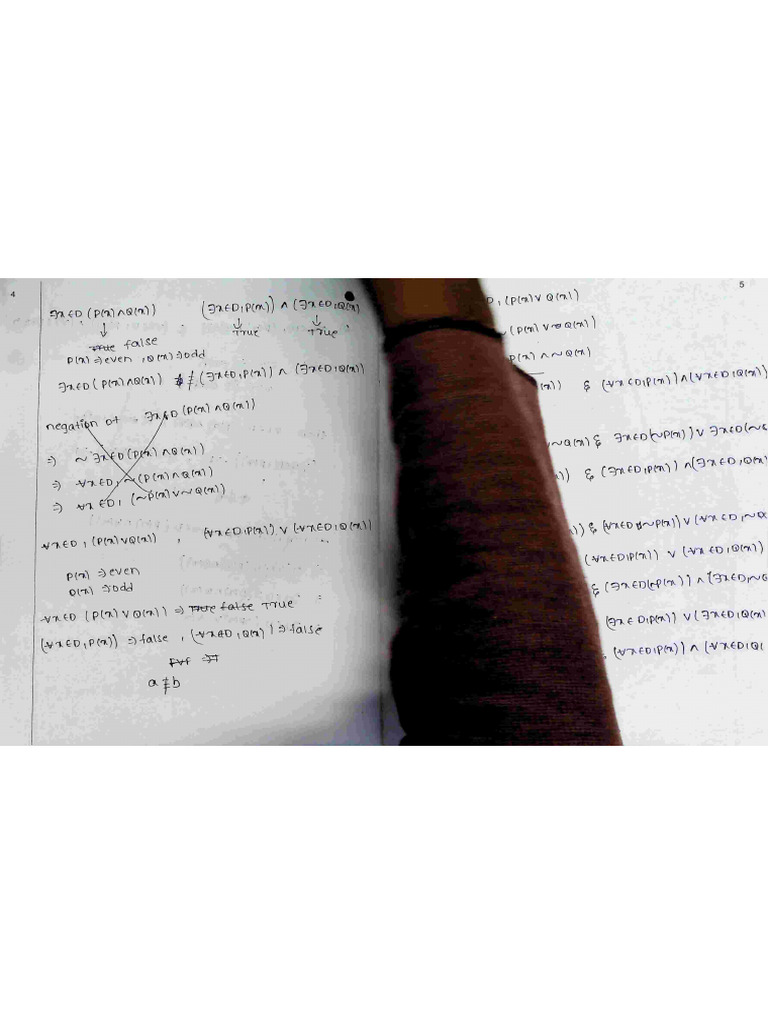 4
∃x∈D (P(x)∧Q(x)) (∃x∈D, P(x)) ∧ (∃x∈D, Q(x)
↓ ↓ ↓
True false True True
P(x) ⇒ even , Q(x) ⇒ odd
∃x∈D (P(x)∧Q(x)) ≢ (∃x∈D, P(x)) ∧ (∃x∈D, Q(x))
negation of ∃x∈D (P(x)∧Q(x))
⇒) ~∃x∈D (P(x)∧Q(x))
⇒ ∀x∈D, ~(P(x)∧Q(x))
⇒ ∀x∈D, (~P(x)∨~Q(x))
∀x∈D, (P(x)∨Q(x)) , (∀x∈D, P(x)) ∨ (∀x∈D, Q(x))
P(x) ⇒ even
Q(x) ⇒ odd
∀x∈D (P(x)∨Q(x)) ⇒ True false True
(∀x∈D, P(x)) ⇒ false , (∀x∈D, Q(x)) ⇒ false
FVF ⇒T
a ≢ b
5
D, (P(x)∨Q(x))
(P(x)∨Q(x))
P(x)∧~Q(x)
(x)) & (∀x∈D, P(x))∧(∀x∈D, Q(x))
~Q(x) & ∃x∈D(~P(x))∨∃x∈D(~
)) & (∃x∈D, P(x)) ∧(∃x∈D, Q(x)
)) & (∀x∈D ~P(x))∨(∀x∈D, ~Q(
(∀x∈D, P(x)) ∨ (∀x∈D, Q(x))
& (∃x∈D(~P(x)) ∧ (∃x∈D, ~
(∃x∈D, P(x)) ∨ (∃x∈D, Q(x)
, (∀x∈D, P(x)) ∧ (∀x∈D, Q(